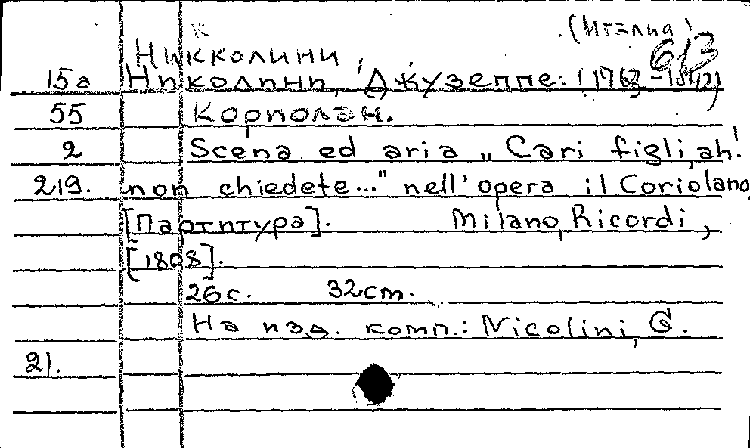 (Италиа)
613
Никколини,
15а Николини, Джузеппе. (1763-1842)
55 Корполан.
2 Scena ed aria „Cari figli, ah!
219. non chiedete..." nell'opera il Coriolano,
[Партитура]. Milano, Ricordi,
[1808].
26с. 32cm.
На изд. комп.: Nicolini, G.
21.